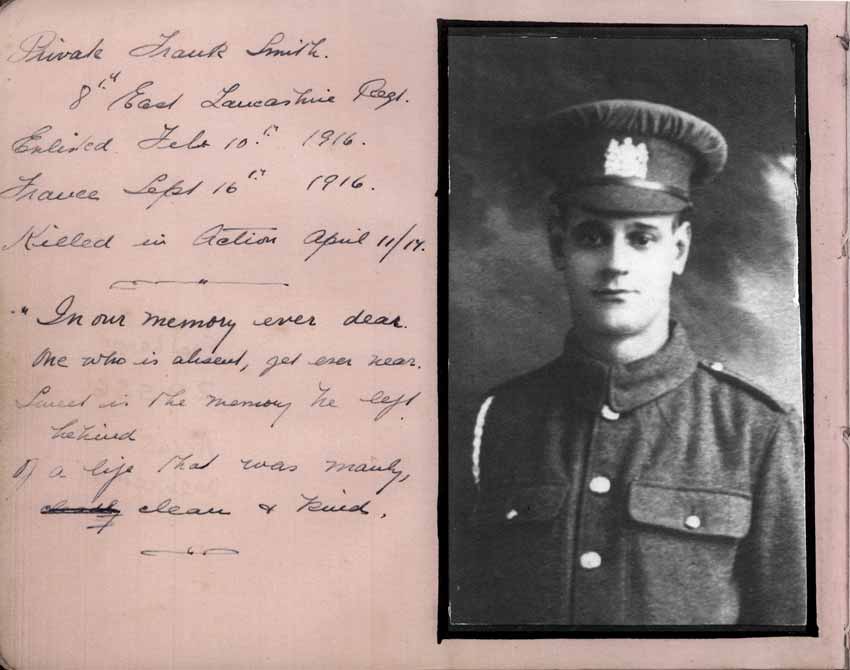 Private Frank Smith.
8th East Lancashire Regt.
Enlisted Feb 10th 1916.
France Sept 16th 1916.
Killed in Action April 11/17.
"In our memory ever dear.
One who is absent, yet ever near.
Sweet is the memory he left
behind
Of a life that was manly,
clean & kind.